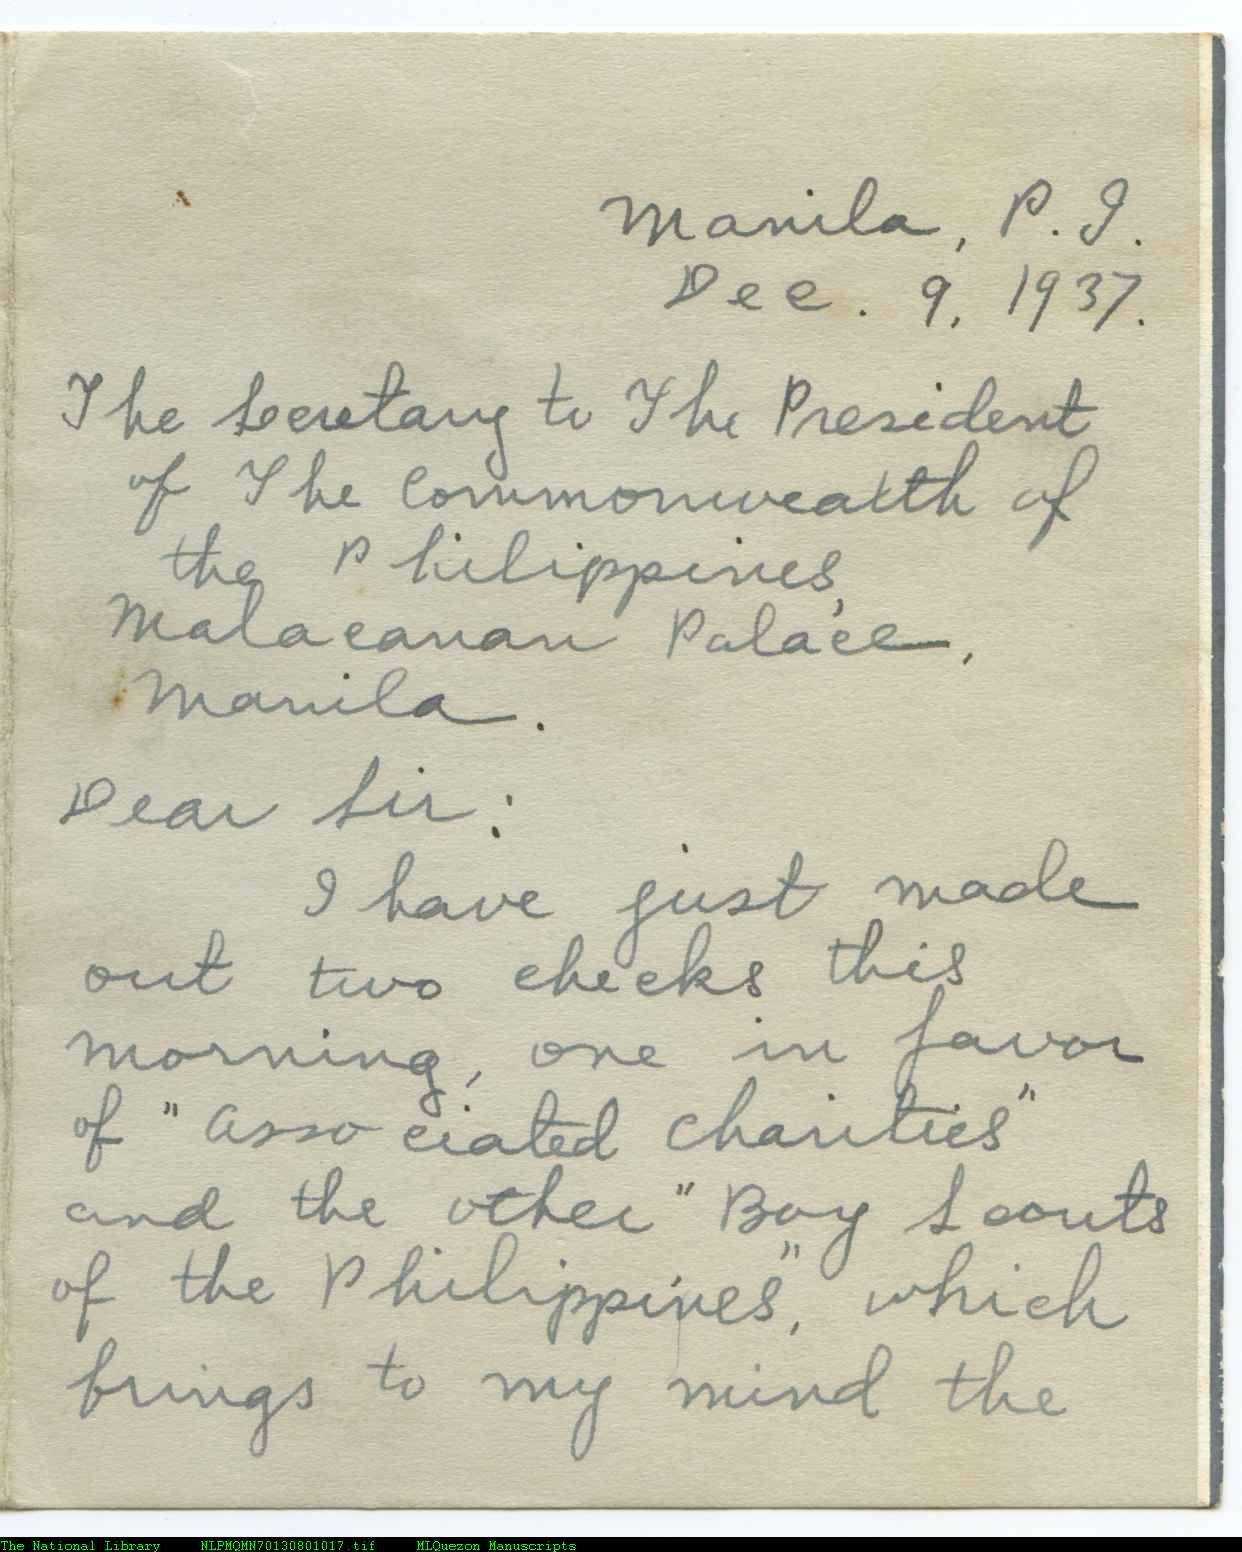 Manila, P. I.
Dec. 9, 1937.
The Secretary to The President
of The Commonwealth of
the Philippines,
Malacanan Palace,
Manila.
Dear Sir:
I have just made
out two checks this
morning, one in favor
of "Associated Charities"
and the other "Boy Scouts
of the Philippines", which
brings to my mind the
The National Library NLPMQMN70130801017.tif MLQuezon Manuscripts